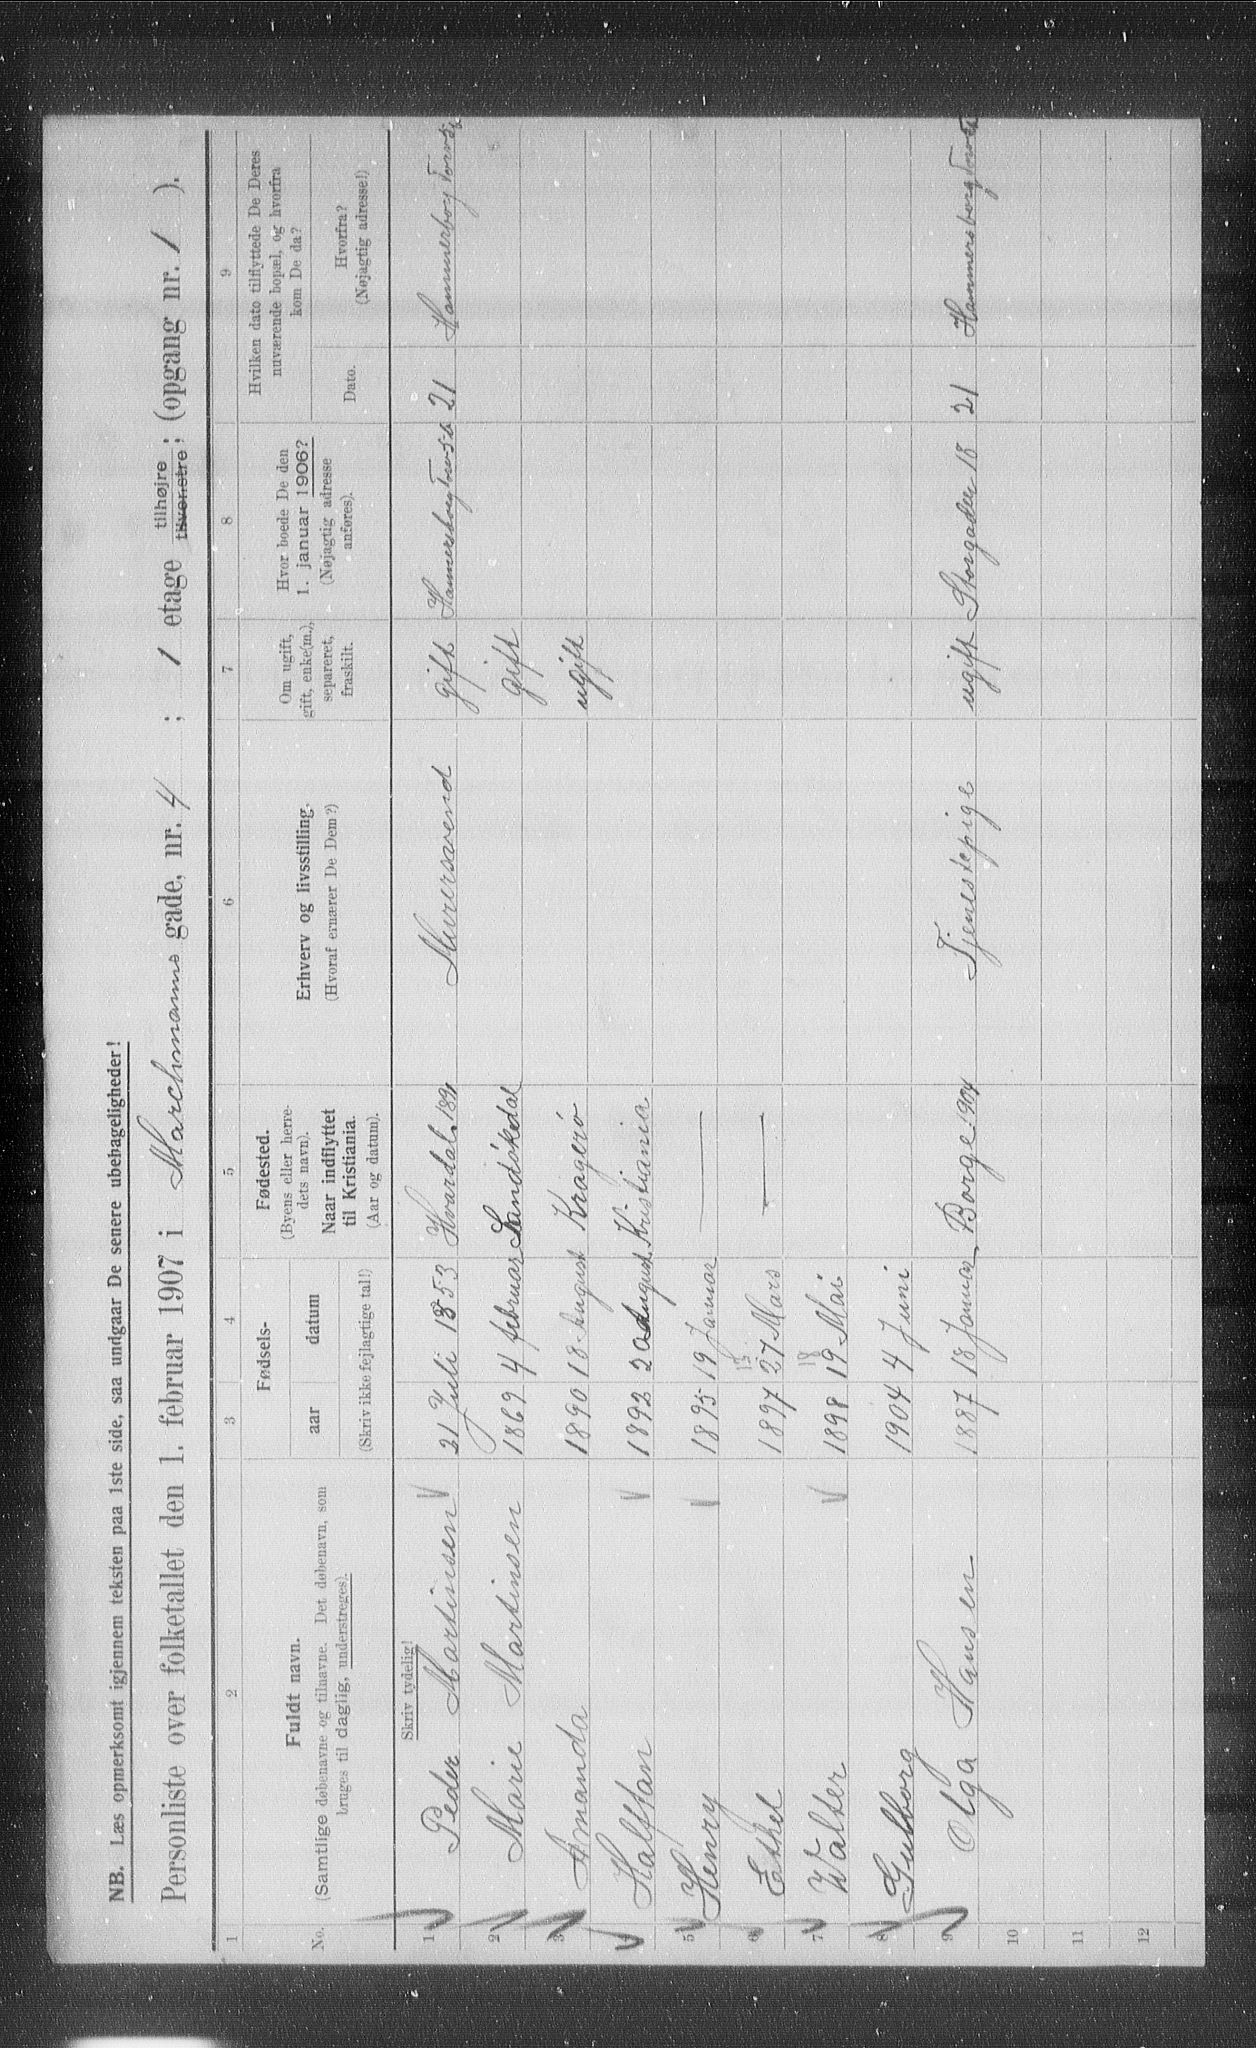 NB. Læs opmerksomt igjennem teksten paa 1ste side, saa undgaar De senere ubehageligheder!
Personliste over folketallet den 1. februar 1907 i Marchmanns gade, nr. 4 ; 1 etage tilhøjre tilvenstre ; (opgang nr. 1 ).
1 2 3 4 5 6 7 8 9
No. Fuldt navn. (Samtlige døbenavne og tilnavne. Det døbenavn, som bruges til daglig, understreges). Skriv tydelig!
Fødsels- aar datum (Skriv ikke fejlagtige tal!)
Fødested. (Byens eller herredets navn). Naar indflyttet til Kristiania. (Aar og datum).
Erhverv og livsstilling. (Hvoraf ernærer De Dem?)
Om ugift, gift, enke(m.), separeret, fraskilt.
Hvor boede De den 1. januar 1906? (Nøjagtig adresse anføres).
Hvilken dato tilflyttede De Deres nuværende bopæl, og hvorfra kom De da?
Dato. Hvorfra? (Nøjagtig adresse!)
1 Peder Martinsen 21 Juli 1853 Murersvend gift 21
2 Marie Martinsen 1869 4 februar Sandökedal gift
3 Amanda 1890 18 August Kragerö ugift
Halfdan 1892 20 August Kristiania
5 Henry 1895 19 Januar —
6 Ethel 1897 27 Mars —
7 Walter 1898 19 Mai
8 Gulborg 1904 4 Juni
9 Olga Hansen 1887 18 Januar Borge 1904 Tjenestepige ugift Storgaden 18 21
10
11
12